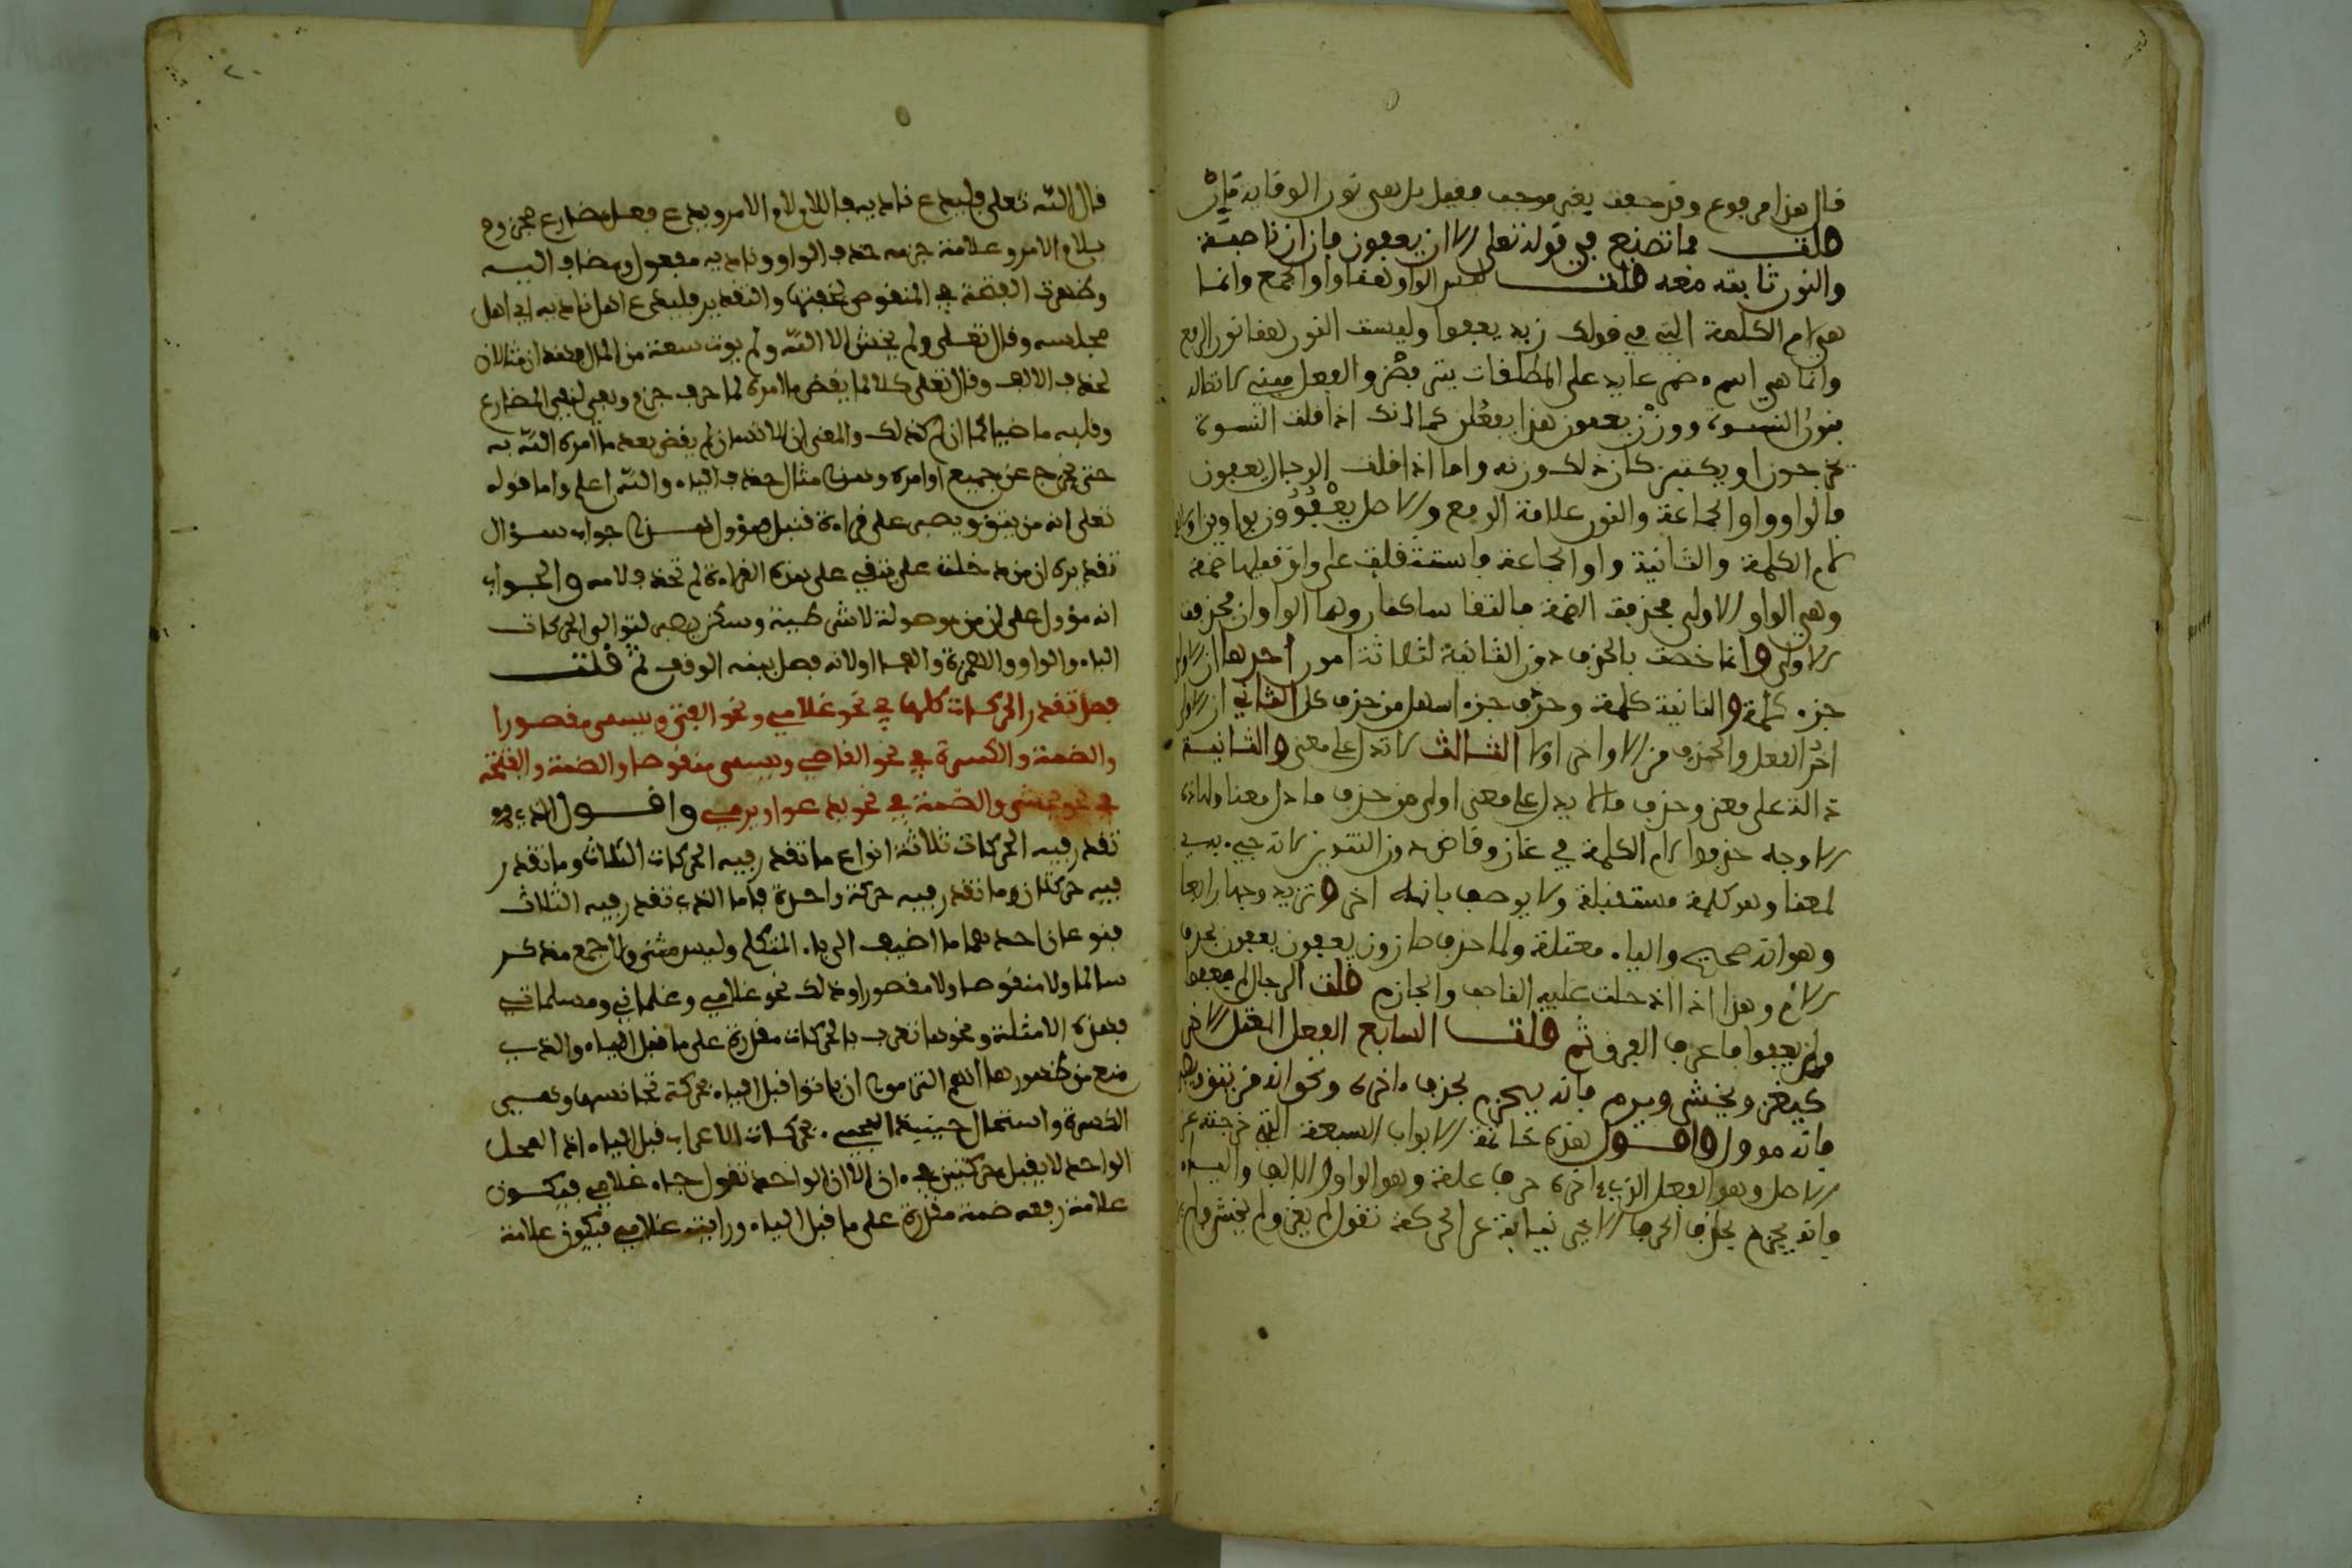 قال هذا مرفوع وقد حذفت بغير موجب فقيل بل هي نون الوقاية فان
قلت فما تصنع في قوله تعلى الا ان يعفون فان ان ناصبة
والنون ثابتة معه قلت ليس الواو هنا واو الجمع وانما
هي لام الكلمة التي في قولك زيد يعفوا وليست النون هنا نون الرفع
وانما هي اسم مضمر عايد على المطلقات يتربصن والفعل مبني لاتصاله
بنون النسوة ووزن يعفون هذا يفعلن كما انك اذا قلت النسوة
يخرجن او يكتبن كان ذلك وزنه واما اذا قلت الرجال يعفون
فالواو واو الجماعة والنون علامة الرفع والاصل يعفوون بواوين اولاهما
لام الكلمة والثانية واو الجماعة فاستثقلت على واو قبلها ضمة
وهي الواو الاولى فحذفت الضمة فالتقا ساكنان وهما الواوان فحذفت
الاولى وانما خصت بالحذف دون الثانية لثلاثة امور احدها ان الاولى
جزء كلمة والثانية كلمة وحذف جزء اسهل من حذف كل الثاني ان الاولى
اخر الفعل والحذف من الاواخر اولا الثالث لا تدل على معنى والثانية
دالة على معنى وحذف ما لا يدل على معنى اولى من حذف ما دل معنا ولهاذه
الاوجه حذفوا لام الكلمة في غاز وقاض دون التنوين لانه جيء به
لمعنا وهو كلمة مستقلة ولا يوصف بانه اخر وتزيد وجها رابعا
وهو انه صحيح والياء معتلة ولما حذف صار وزن يعفون يعفون بحذف
الام وهذا اذا ادخلت عليه الناصب والجازم قلت الرجال لم يعفوا
ولن يعفوا فاعرف الفرق ثم قلت السابع الفعل المعتل الاخر
كيغز ويخش ويرم فانه يجزم بحذف ءاخره ونحو انه من يتق ويصبر
فانه موول واقول هذه خاتمة الابواب السبعة التي خرجت عن
الاصل وهو الفعل الذي ءاخره حرف علة وهو الواو والالف والياء
فانه يجزم بحذف الحرف الاخير نيابة عن الحركة تقول لم يغز ولم يخش ولم يرم
قال الله تعلى فليدع ناديه فاللام لام الامر ويدع فعل مضارع مجزوم
بلام الامر وعلامة جزمه حذف الواو وناديه مفعول ومضاف اليه
وظهرت الفتحة في المنقوص لخفتها والتقدير فليدع اهل ناديه اي اهل
مجلسه وقال تعلى ولم يخش الا الله ولم يوت سعة من المال فهذان مثالان
لحذف الالف وقال تعلى كلا لما يقض ما امره لما حرف جزم ونفي لنفي المضارع
وقلبه ماضيا كما ان لم كذلك والمعنى ان الانسان لم يقض بعد ما امره الله به
حتى يخرج عن جميع اوامره وهذا مثال حذف الياء والله اعلم واما قوله
تعلى انه من يتقي ويصبر على قراءة قنبل فمؤول هذا جواب سؤال
تقديره ان من دخلت على يتقي على هذه القراءة لم تحذف لامه والجواب
انه مؤول على ان من موصولة لا شرطية وسكن يصبر لتوالي الحركات
الباء والراء والفاء والهمزة او لانه وصل بنية الوقف ثم قلت
فصل تقدر الحركات كلها في نحو غلامي ونحو الفتى ويسمى مقصورا
والضمة والكسرة في نحو القاضي ويسمى منقوصا والضمة والفتحة
في نحو يخشى والضمة في نحو يدعوا ويرمي واقول الذي
تقدر فيه الحركات ثلاثة انواع ما تقدر فيه الحركات الثلاث وما تقدر
فيه حركتان وما تقدر فيه حركة واحدة فاما الذي تقدر فيه الثلاث
فنوعان احدهما ما اضيف الى ياء المتكلم وليس مثنى ولا جمع مذكر
سالما ولا منقوصا ولا مقصورا وذلك نحو غلامي وغلماني ومسلماتي
فهذه الامثلة ونحوها تعرب بالحركات مقدرة على ما قبل الياء والذي
منع من ظهورها انهم التزموا ان ياتوا قبل الياء بحركة تجانسها وهي
الكسرة واستحال حينئذ المجيء بحركات الاعراب قبل الياء اذ المحل
الواحد لا يقبل حركتين في ءان الان الواحد تقول جاء غلامي فيكون
علامة رفعه ضمة مقدرة على ما قبل الياء ورايت غلامي فيكون علامة